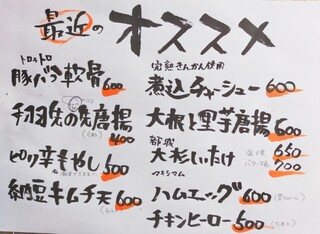 最近のオススメ
トロットロ
豚バラ軟骨 600
手羽先の先唐揚 400
ピリ辛もやし 500
納豆キムチ天 600
完熟きんかん使用
煮込チャーシュー 600
大根と里芋唐揚 600
都城
大杉しいたけ 650
700
マキシマム
ハムエッグ 600
チキンヒーロー 500